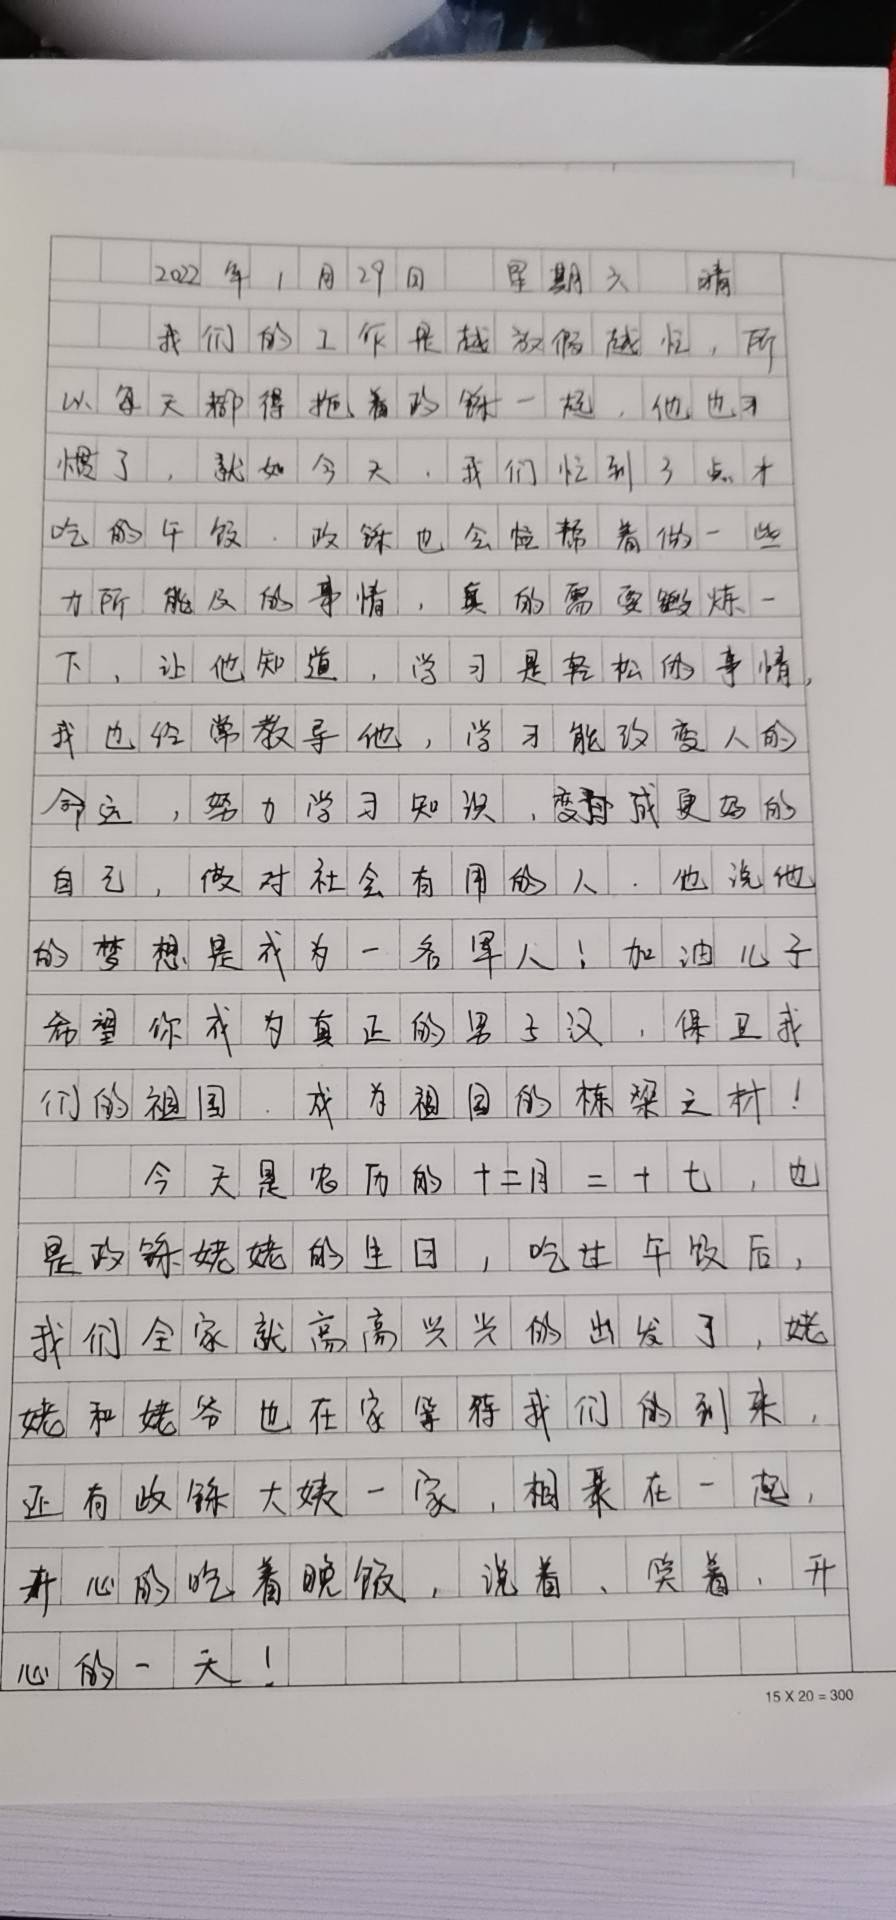 2022年1月29日 星期六 晴
我们的工作是越放假越忙，所
以每天都得拖着政铄一起，他也习
惯了，就如今天，我们忙到3点才
吃的午饭．政铄也会忙帮着做一些
力所能及的事情，真的需要锻炼一
下，让他知道，学习是轻松的事情，
我也经常教导他，学习能改变人的
命运，努力学习知识，变成更好的
自己，做对社会有用的人．他说他
的梦想是成为一名军人！加油儿子
希望你成为真正的男子汉，保卫我
们的祖国．成为祖国的栋梁之材！
今天是农历的十二月二十七，也
是政铄姥姥的生日，吃过午饭后，
我们全家就高高兴兴的出发了，姥
姥和姥爷也在家等待我们的到来，
还有政铄大姨一家，相聚在一起，
开心的吃着晚饭，说着、笑着，开
心的一天！
15 X 20 = 300